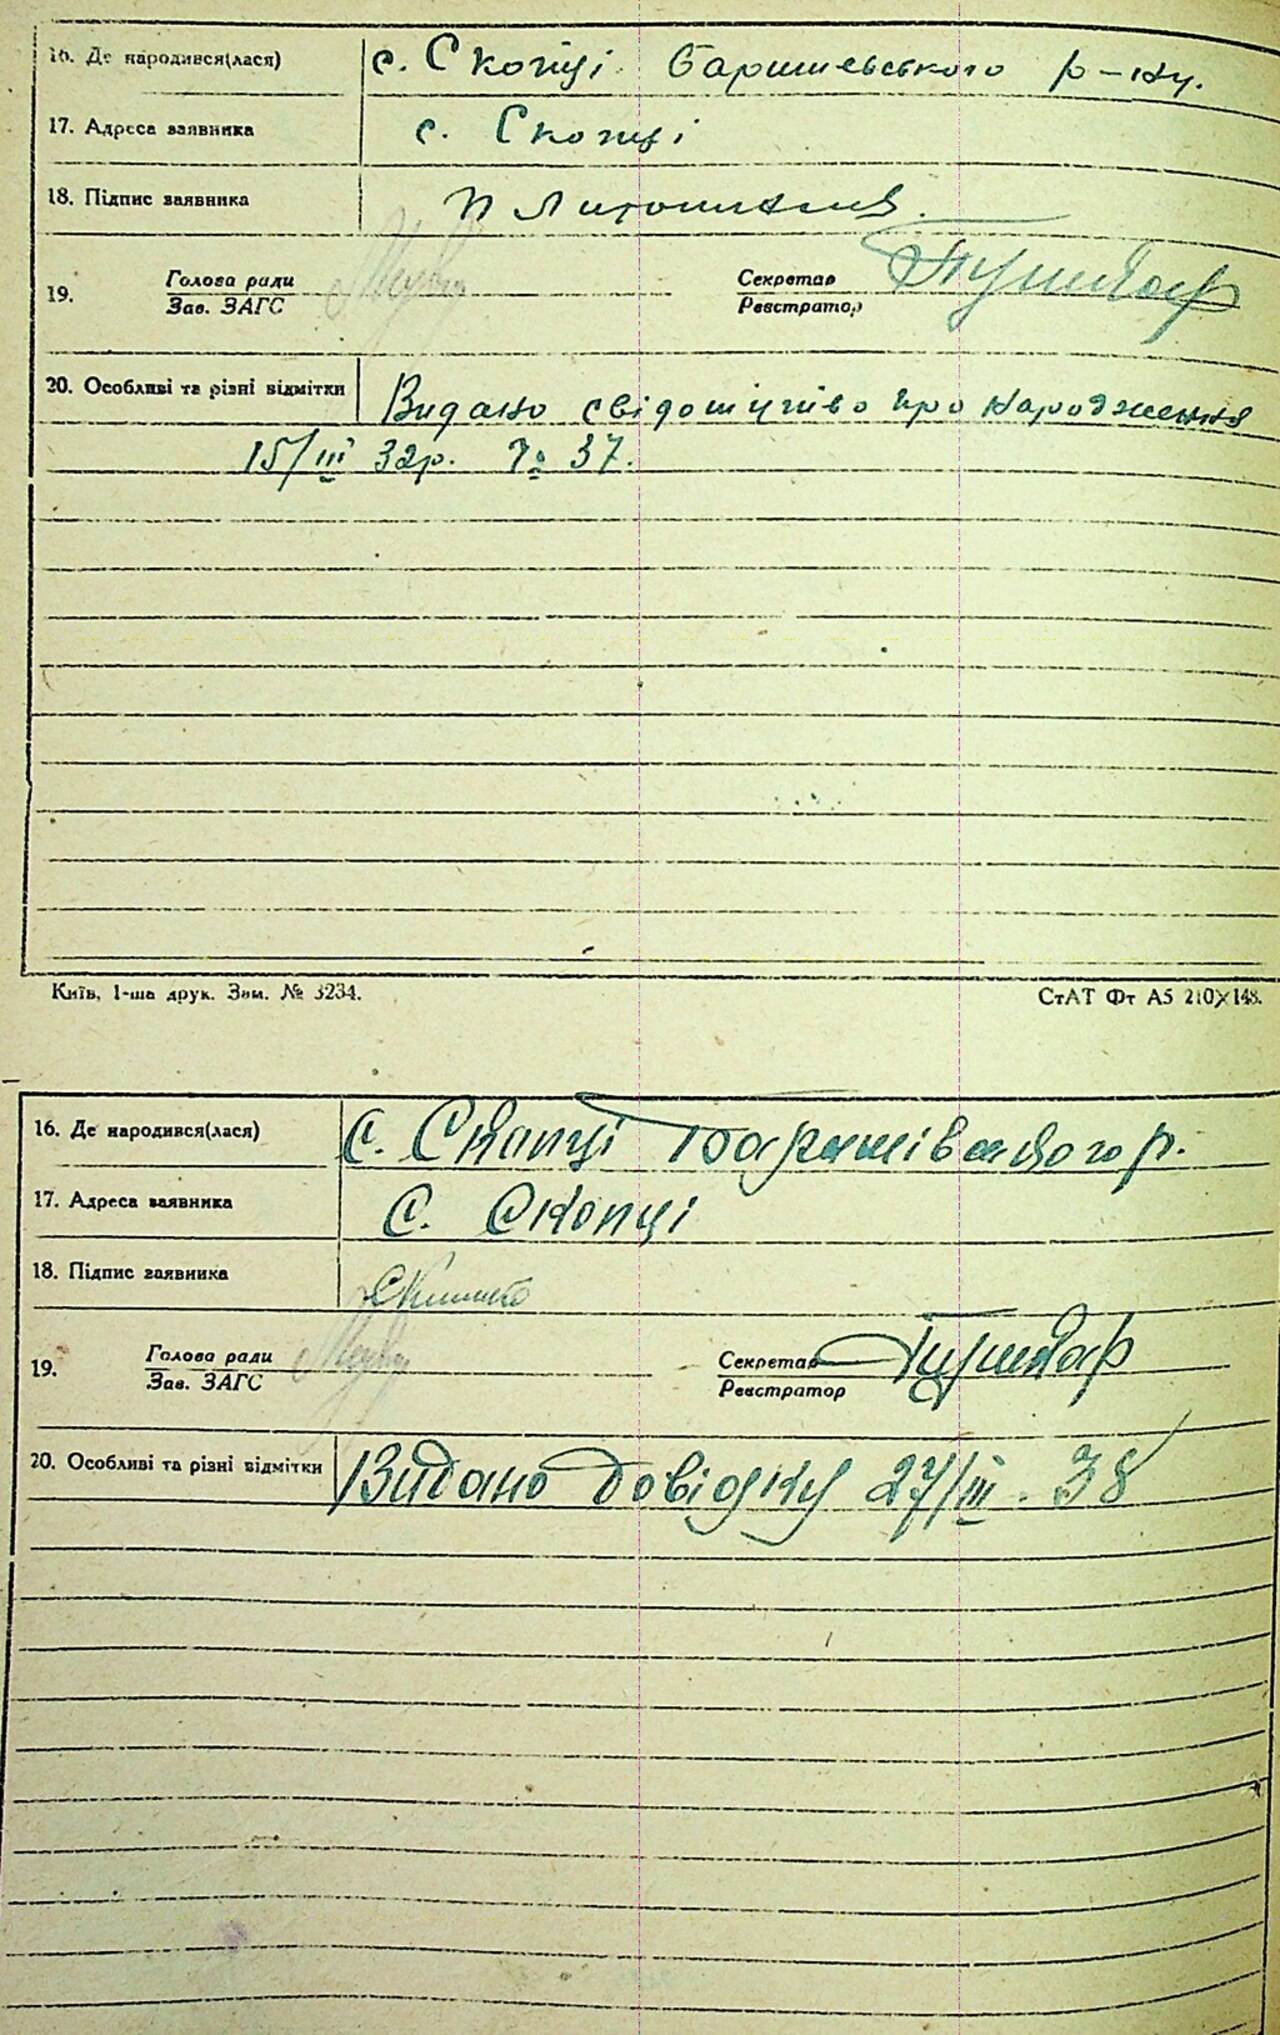 16. Де народився(лася) с. Скопці Баришевського р-ну.
17. Адреса заявника с. Скопці
18. Підпис заявника П
19. Голова ради Секретар
Зав. ЗАГС Реєстратор
20. Особливі та різні відмітки Видано свідоцтво про народження
15/III 32р. № 37.
Київ, 1-ша друк. Зам. № 3234. СтАТ Фт А5 210×148.
16. Де народився(лася) с. Скопці Баришівського р.
17. Адреса заявника с. Скопці
18. Підпис заявника
19. Голова ради Секретар
Зав. ЗАГС Реєстратор
20. Особливі та різні відмітки Видано довідку 27/III. 38